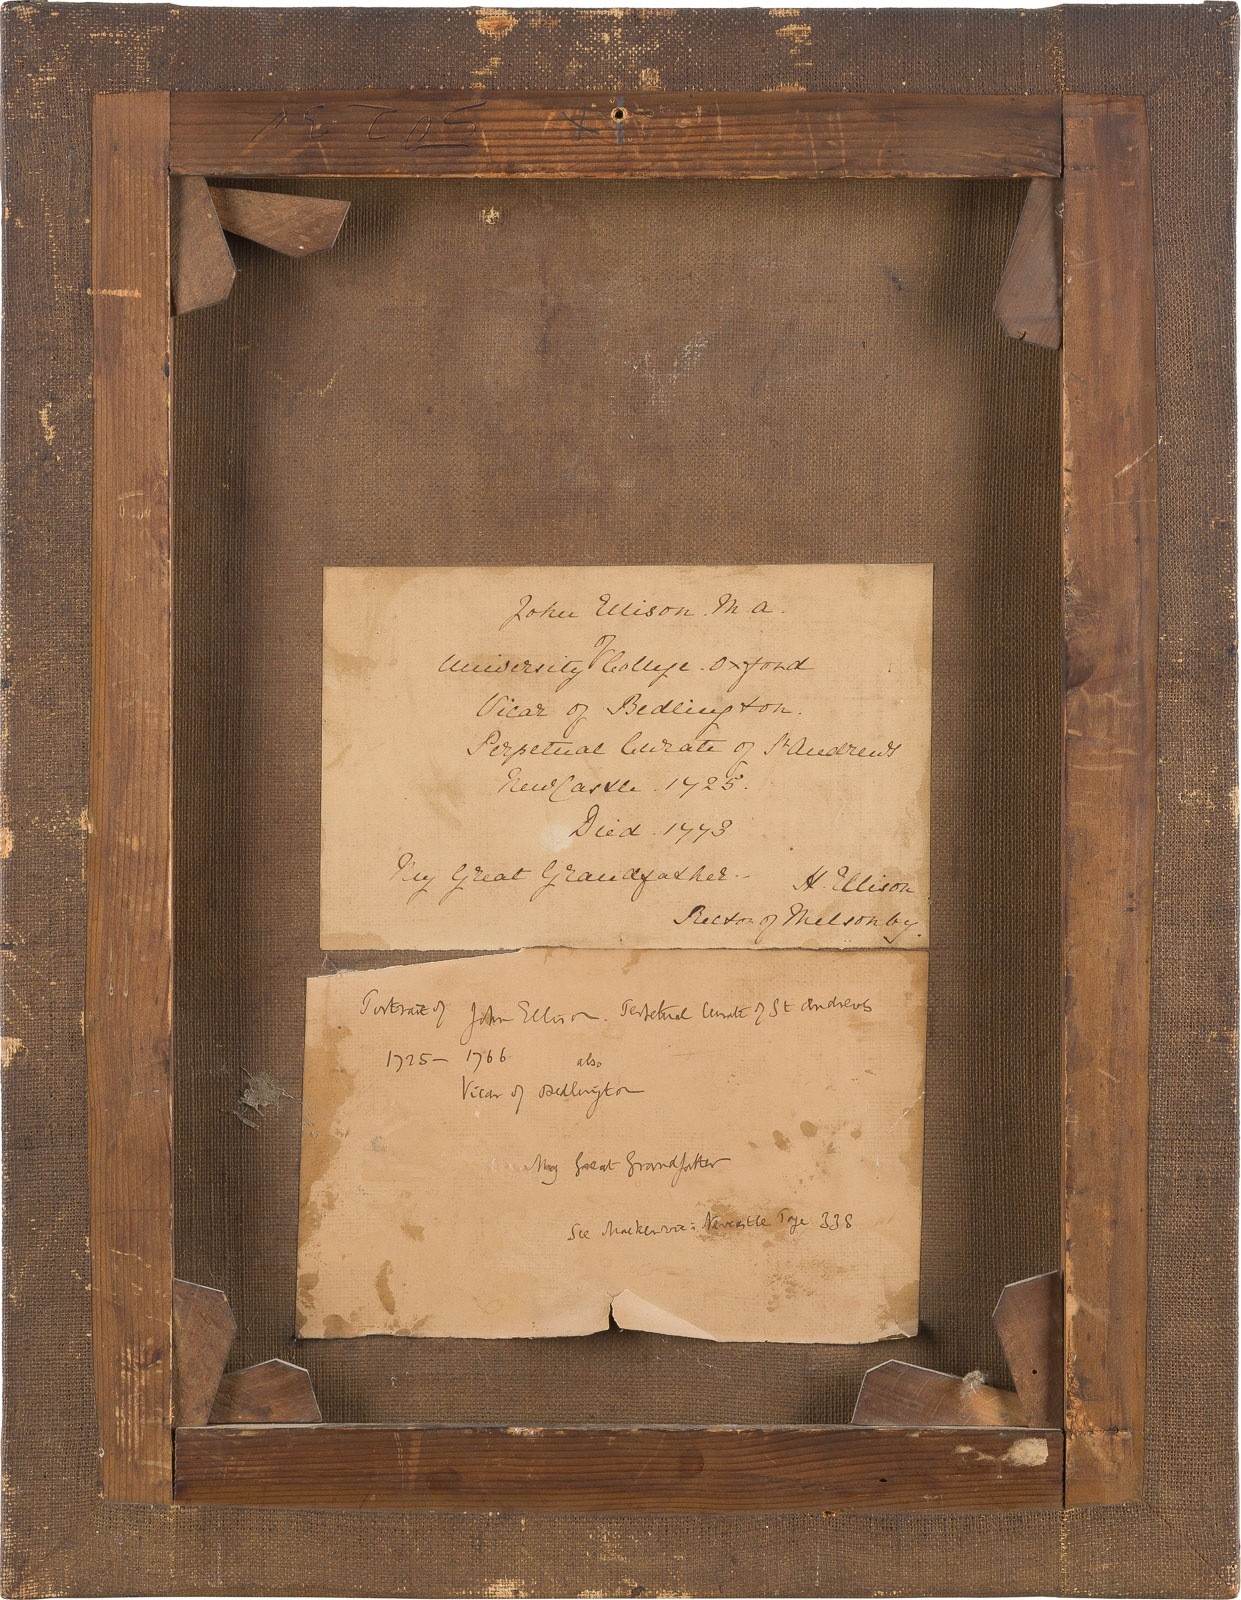 John Ellison. M. a.
of
University College. Oxford
Vicar of Bedlington.
Perpetual Curate of St Andrews
NewCastle. 1725.
Died. 1773
My Great Grandfather.
H. Ellison
Rector of Melsonby.
Portrait of John Ellison. Perpetual Curate of St Andrews
1725 – 1766 also
Vicar of Bedlington
My Great Grandfather
See Mackenzie's Newcastle Page 338